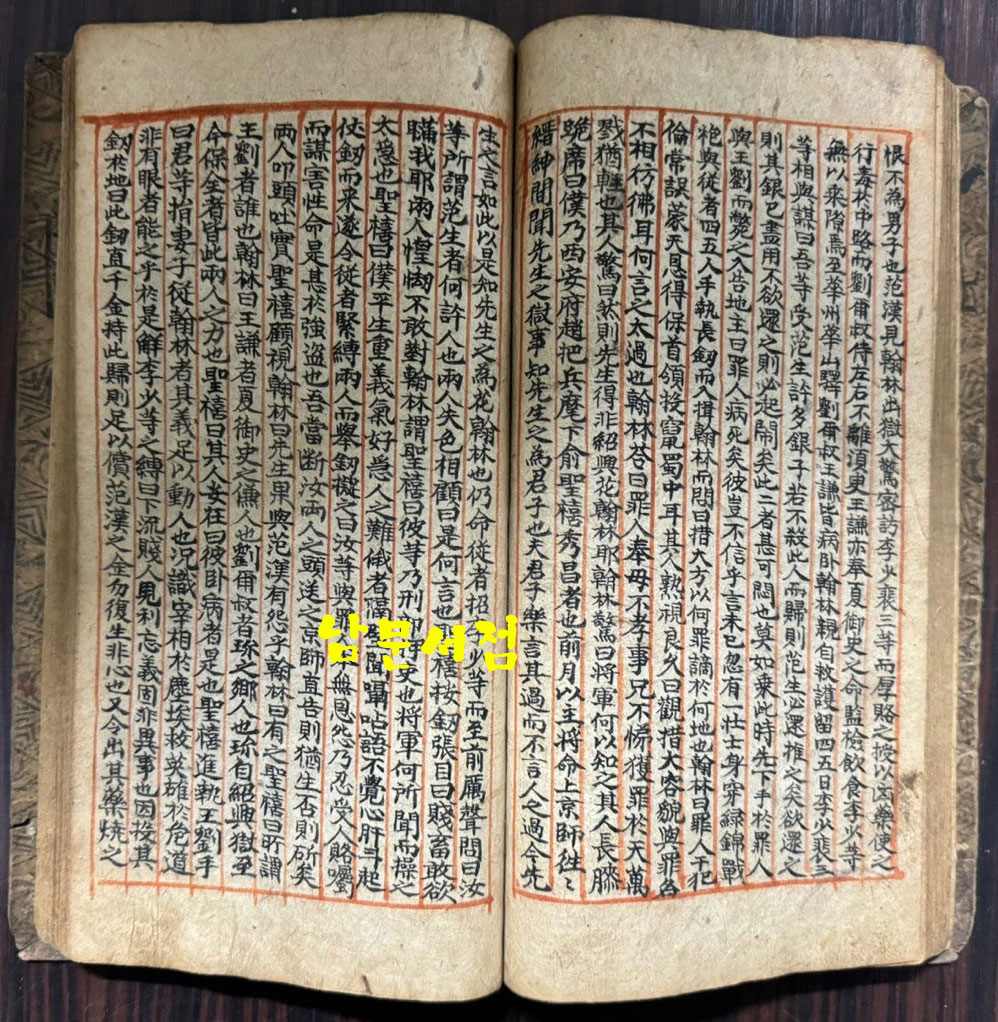 恨不為男子也范漢見翰林出獄大驚密訪李少裴三等而厚賂之授以凶藥使之
行毒於中路而劉甭叔侍左右不離須臾王謙亦奉夏御史之命監檢飲食李少等
無以来隙焉至華州華山驛劉甭叔王謙皆病卧翰林親自救護留四五日李少裴三
等相與謀曰吾等受范生許多銀子若不殺此人而歸則范生必還推之矣欲還之
則其銀已盡用不欲還之則必起鬧矣此二者甚可悶也莫如乗此時先下手於罪人
與王劉而斃之入告地主曰罪人病死矣彼豈不信乎言未已忽有一壮士身穿綠錦戰
袍與從者四五人手執長釰而入揖翰林而問曰措大方以何罪謫於何地也翰林曰罪人干犯
倫常誤蒙天恩得保首領投竄蜀中耳其人熟視良久曰觀措大容貌與罪名
不相彷彿耳何言之太過也翰林答曰罪人奉母不孝事兄不悌獲罪於天萬
戮猶輕也其人驚曰然則先生得非紹興花翰林耶翰林驚曰將軍何以知之其人長膝
跪席曰僕乃西安府趙把兵麾下俞聖禧秀昌者也前月以主將命上京師徃〻
縉紳間聞先生之獄事知先生之為君子也夫君子樂言其過而不言人之過今先
生之言如此以是知先生之為花翰林也仍命從者招李少等而至前厲聲問曰汝
等所謂范生者何許人也兩人失色相顧曰是何言也聖禧按釰張目曰賤畜敢欲
瞞我耶兩人惶㤼不敢對翰林謂聖禧曰彼等乃刑曹府史也將軍何所聞而操之
太急也聖禧曰僕平生重義氣好急人之難俄者隔壁聞囁呫語不覺心肝斗起
仗釰而来遂令從者緊縛兩人而舉釰擬之曰汝等與罪人無恩怨乃忍受人賂囑
而謀害性命是甚於強盗也吾當断汝兩人之頭送之京師直告則猶生否則斫矣
兩人叩頭吐實聖禧顧視翰林曰先生果與范漢有怨乎翰林曰有之聖禧曰所謂
王劉者誰也翰林曰王謙者夏御史之傔人也劉甭叔者琢之鄉人也琢自紹興獄至
今保全者皆此兩人之力也聖禧曰其人安在曰彼卧病者是也聖禧進執王劉手
曰君等捐妻子從翰林者其義足以動人也况識宰相於塵埃救英雄於危道
非有眼者能之乎於是解李少等之縛曰下流賤人見利忘義固非異事也因投其
釰於地曰此釰直千金持此歸則足以償范漢之金勿復生非心也又令出其藥燒之
남문서점